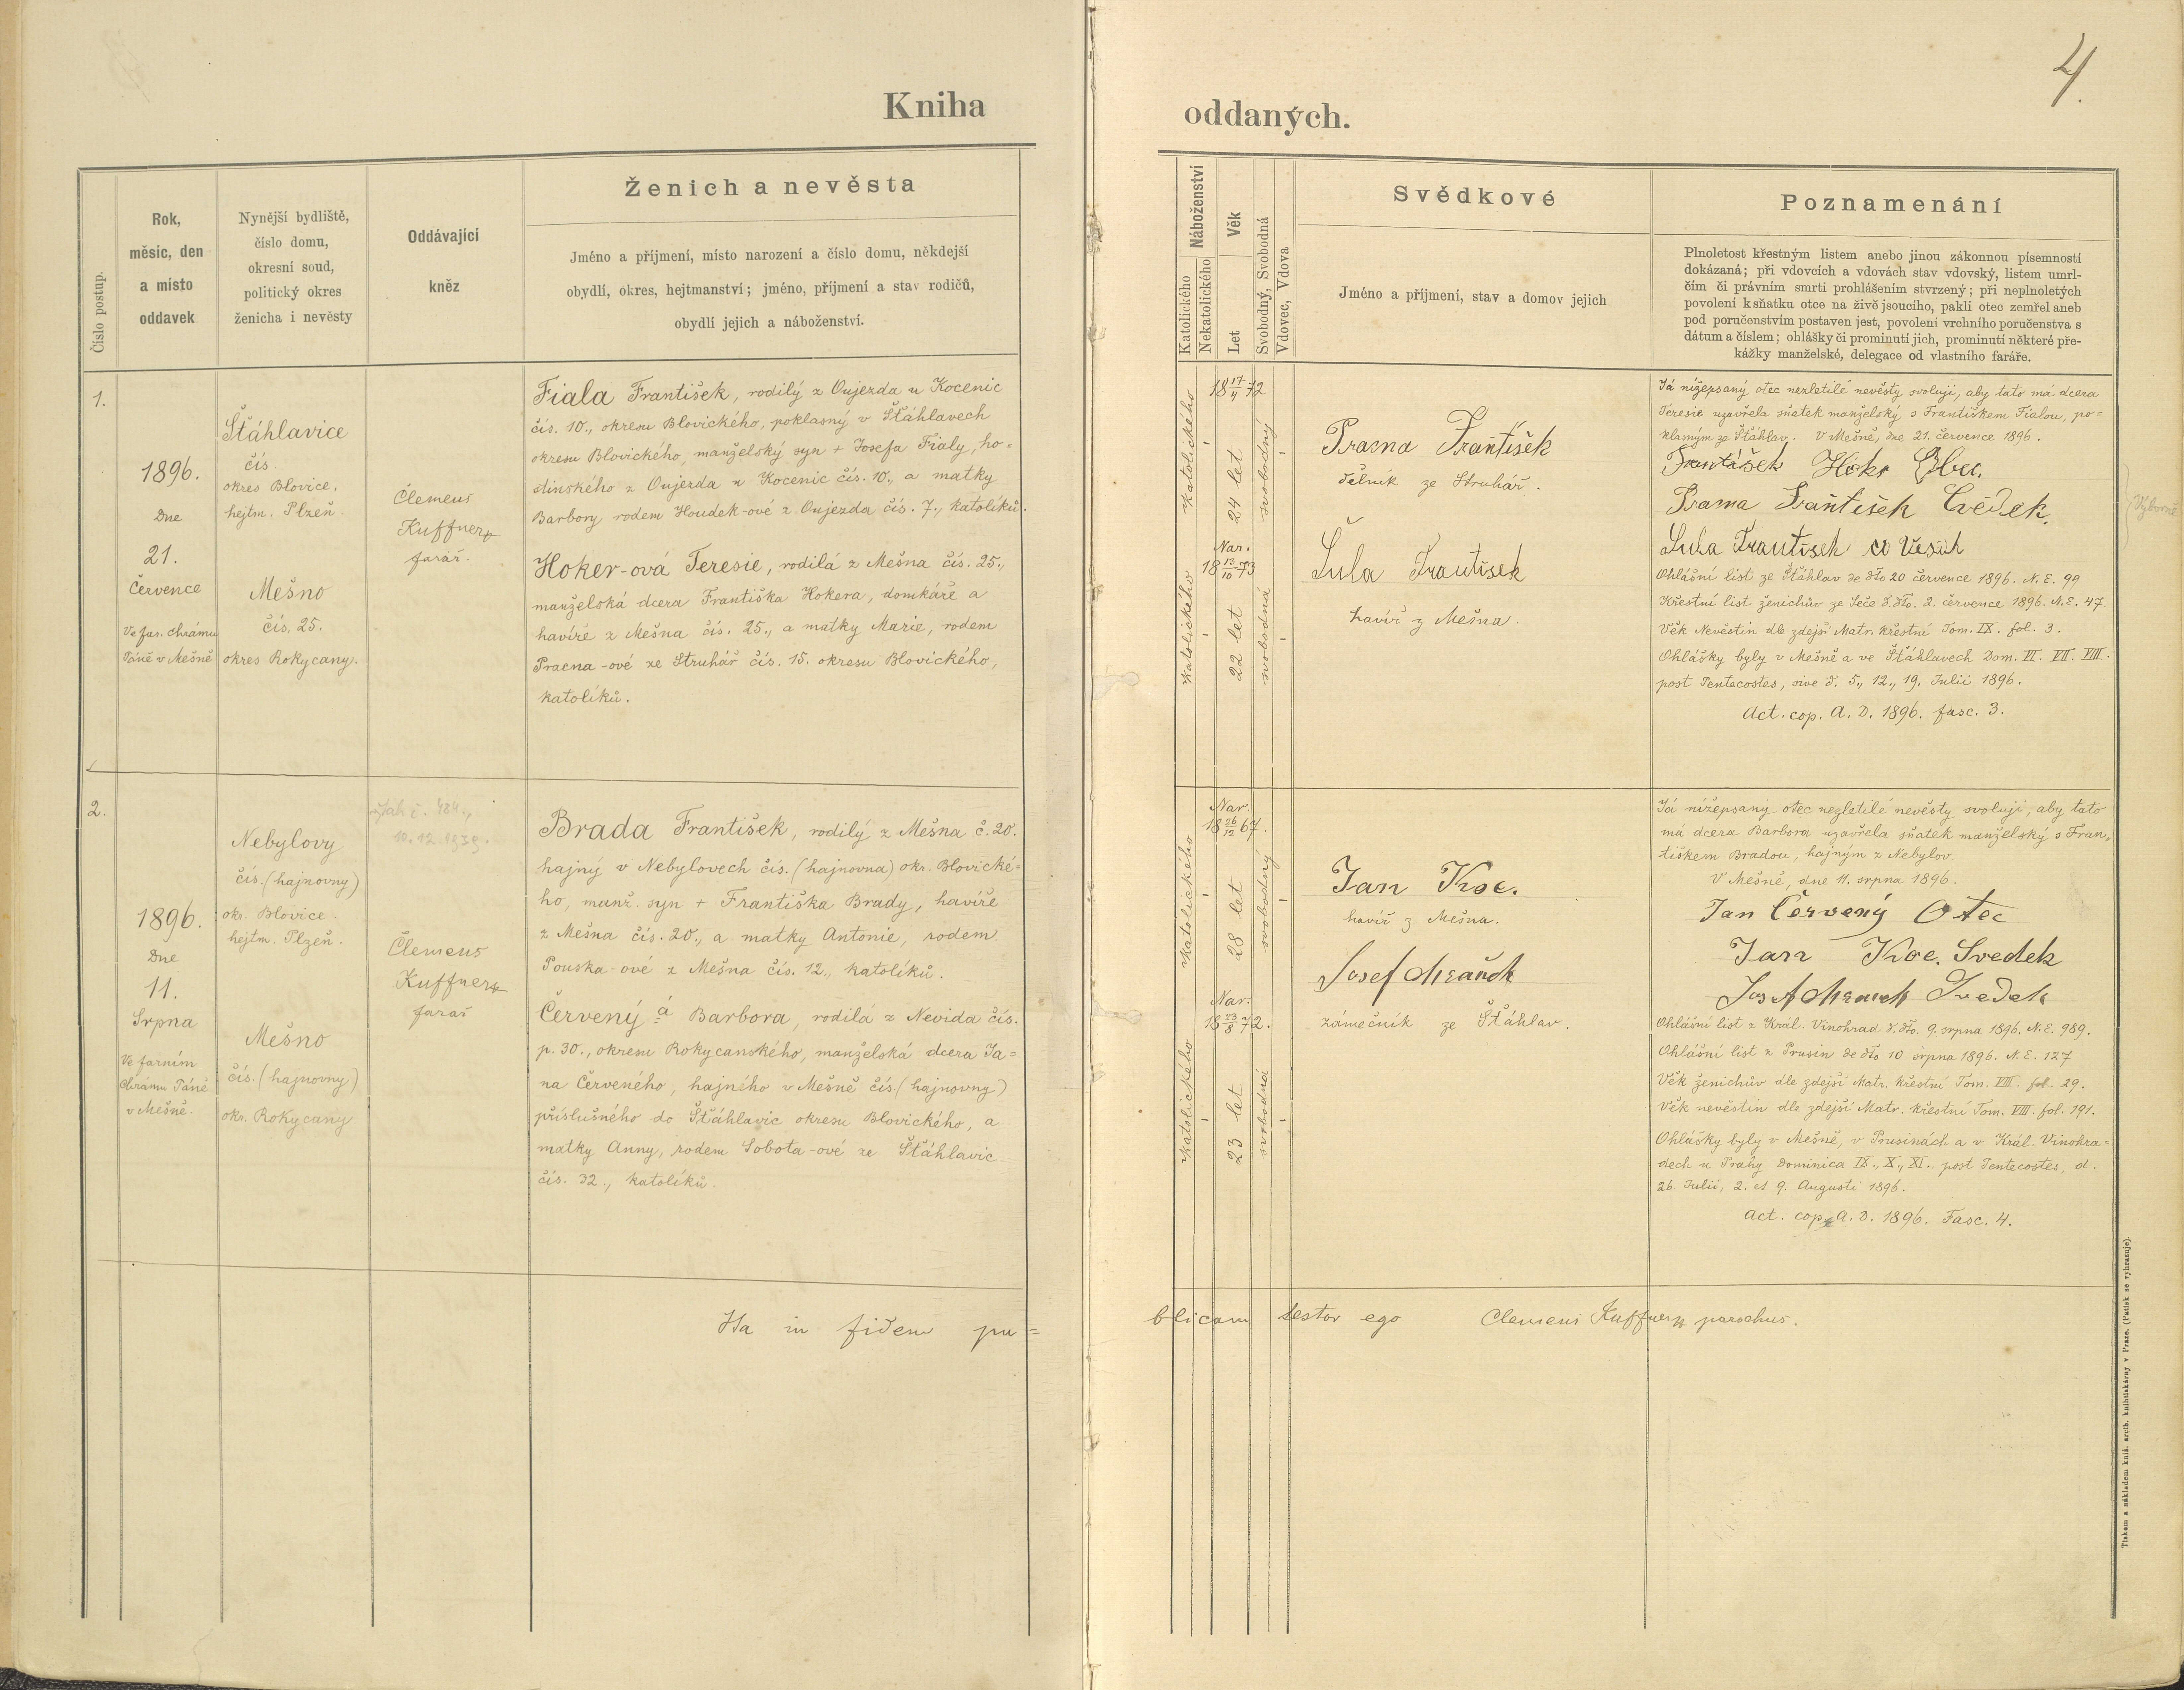 4.
Kniha
oddaných.
Číslo postup.
Rok,
měsíc, den
a místo
oddavek
Nynější bydliště,
číslo domu,
okresní soud,
politický okres
ženicha i nevěsty
Oddávající
kněz
Ženich a nevěsta
Jméno a příjmení, místo narození a číslo domu, někdejší
obydlí, okres, hejtmanství; jméno, příjmení a stav rodičů,
obydlí jejich a náboženství.
Náboženství
Katolického
Nekatolického
Věk
Let
Svobodný, Svobodná
Vdovec, Vdova
Svědkové
Jméno a příjmení, stav a domov jejich
Poznamenání
Plnoletost křestným listem anebo jinou zákonnou písemností
dokázaná; při vdovcích a vdovách stav vdovský, listem umrl-
čím či právním smrti prohlášením stvrzený; při neplnoletých
povolení k sňatku otce na živě jsoucího, pakli otec zemřel aneb
pod poručenstvím postaven jest, povolení vrchního poručenstva s
dátum a číslem; ohlášky či prominutí jich, prominutí některé pře-
kážky manželské, delegace od vlastního faráře.
1.
1896.
Dne
21.
Července
Ve far. chrámu
Páně v Mešně
Šťáhlavice
čís.
okres Blovice,
hejtm. Plzeň.
Mešno
čís. 25.
okres Rokycany.
Clemens
Kuffner
farář.
Fiala František, rodilý z Oujezda u Kocenic
čís. 10., okresu Blovického, poklasný v Šťáhlavech
okresu Blovického, manželský syn + Josefa Fialy, ho=
stinského z Oujezda u Kocenic čís. 10., a matky
Barbory rodem Houdek-ové z Oujezda čís. 7., katolíků.
Hoker-ová Teresie, rodilá z Mešna čís. 25.,
manželská dcera Františka Hokera, domkáře a
havíře z Mešna čís. 25., a matky Marie, rodem
Pracna-ové ze Struhář čís. 15. okresu Blovického,
katolíků.
katolického
18 17/4 72
24 let
svobodný
katolického
Nar.
18 13/10 73
22 let
svobodná
Pracna František
dělník ze Struhář.
Šula František
havíř z Mešna.
Já nížepsaný otec nezletilé nevěsty svoluji, aby tato má dcera
Teresie uzavřela sňatek manželský s Františkem Fialou, po=
klasným ze Šťáhlav. V Mešně, dne 21. července 1896.
František Hokr
František
Šula František co
Ohlášní list ze Šťáhlav de dto 20 července 1896. N. E. 99
Křestní list ženichův ze Seče d. dto. 2. července 1896. N. E. 47.
Věk Nevěstin dle zdejší Matr. křestní Tom. IX. fol. 3.
Ohlášky byly v Mešně a ve Šťáhlavech Dom. VI. VII. VIII.
post Pentecostes, sive d. 5., 12., 19. Julii 1896.
Act. cop. A. D. 1896. fasc. 3.
2.
1896.
Dne
11.
Srpna
Ve farním
Chrámu Páně
v Mešně.
Nebylovy
čís. (hajnovny)
okr. Blovice.
hejtm. Plzeň.
Mešno
čís. (hajnovny)
okr. Rokycany
Clemens
Kuffner
farář
Brada František, rodilý z Mešna č. 20.
hajný v Nebylovech čís. (hajnovna) okr. Blovické-
ho, manž. syn + Františka Brady, havíře
z Mešna čís. 20., a matky Antonie, rodem
Pouska-ové z Mešna čís. 12., katolíků.
Červený á Barbora, rodilá z Nevida čís.
p. 30., okresu Rokycanského, manželská dcera Ja=
na Červeného, hajného v Mešně čís. (hajnovny)
příslušného do Šťáhlavic okresu Blovického, a
matky Anny, rodem Sobota-ové ze Šťáhlavic
čís. 32., katolíků.
katolického
Nar.
18 26/12 67.
28 let
svobodný
katolického
Nar.
18 23/8 72.
23 let
svobodná
Jan Koc.
havíř z Mešna.
Josef
zámečník ze Šťáhlav.
Já nížepsaný otec nezletilé nevěsty svoluji, aby tato
má dcera Barbora uzavřela sňatek manželský s Fran=
tiškem Bradou, hajným z Nebylov.
V Mešně, dne 11. srpna 1896.
Jan Červený Otec
Jan Koc. Svedek
Josef Svedek
Ohlášní list z Král. Vinohrad d. dto. 9. srpna 1896. N. E. 989.
Ohlášní list z Prusin de dto 10 srpna 1896. N. E. 127
Věk ženichův dle zdejší Matr. křestní Tom. VIII. fol. 29.
Věk nevěstin dle zdejší Matr. křestní Tom. VIII. fol. 191.
Ohlášky byly v Mešně, v Prusinách a v Král. Vinohra=
dech u Prahy Dominica IX., X., XI. post Pentecostes, d.
26. Julii, 2. et 9. Augusti 1896.
Act. cop. A. D. 1896. Fasc. 4.
Ita in fidem pu=
blicam testor ego Clemens Kuffner parochus.
Tiskem a nákladem kníž. arcib. knihtiskárny v Praze. (Patisk se vyhrazuje).